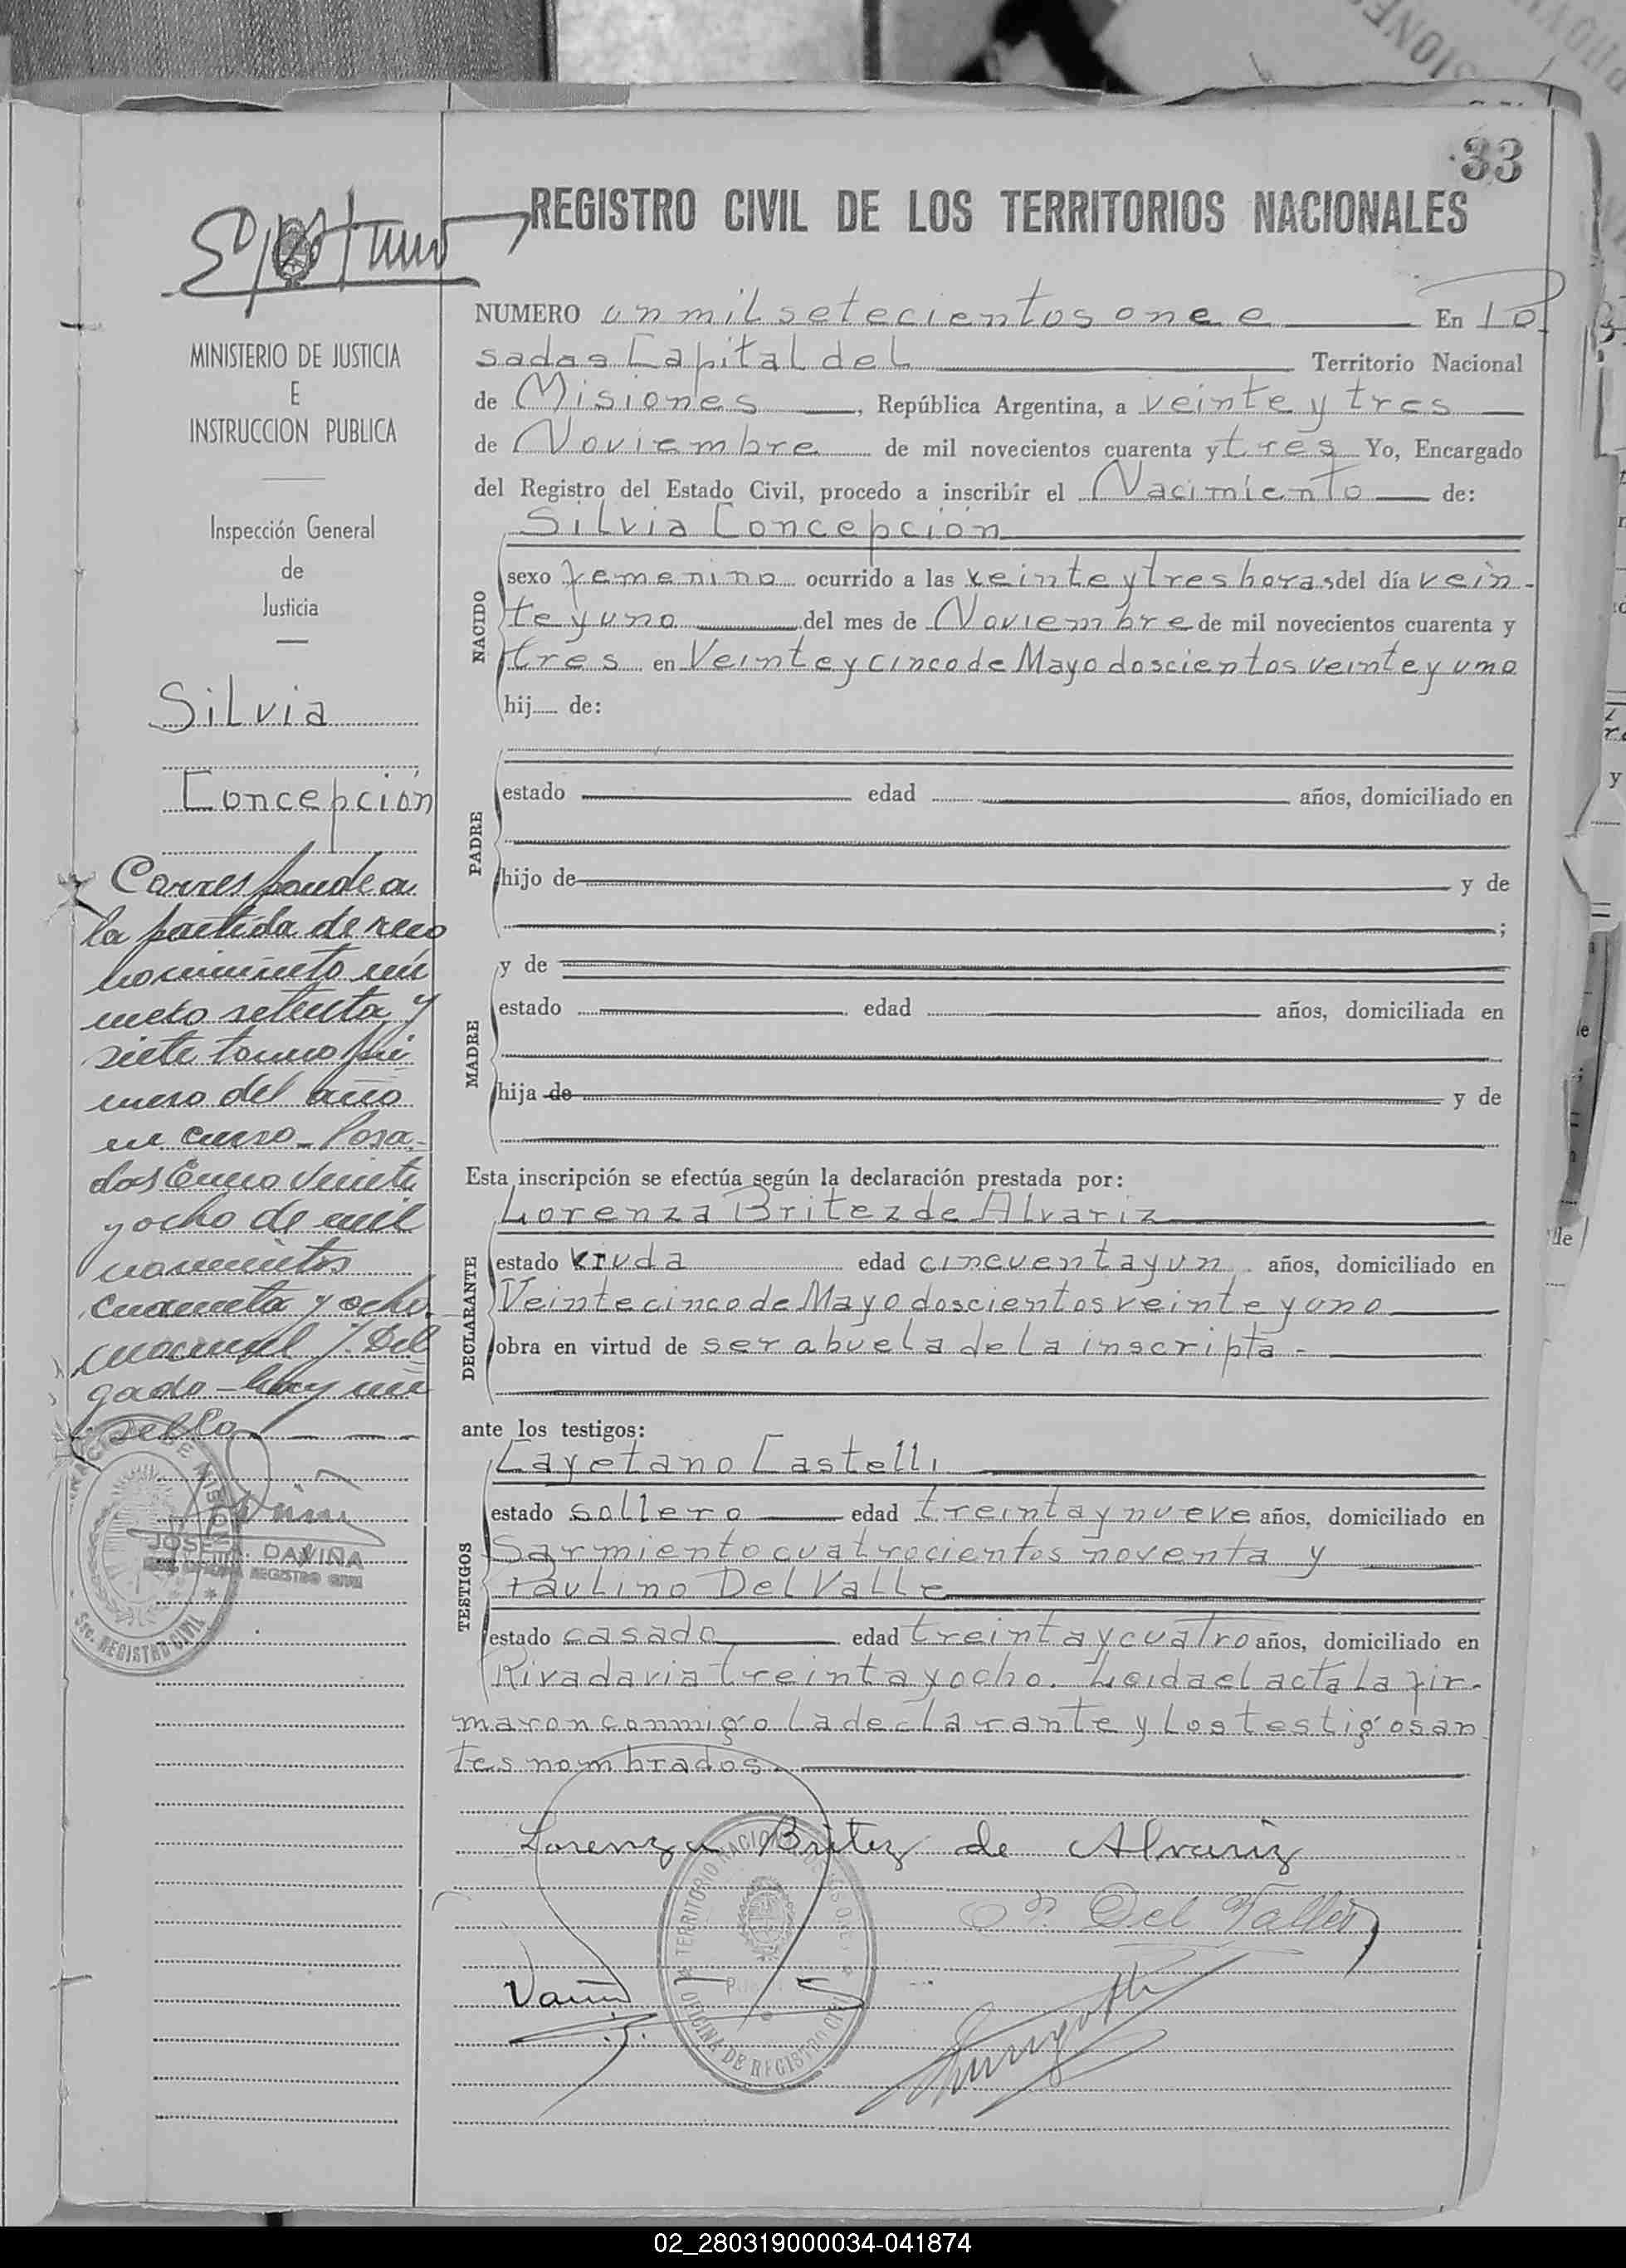 33
REGISTRO CIVIL DE LOS TERRITORIOS NACIONALES
MINISTERIO DE JUSTICIA
E
INSTRUCCION PUBLICA
Inspección General
de
Justicia
Silvia
Concepción
Corresponde a
la partida de reco
nocimiento nú
mero setenta y
siete tomo pri
mero del año
en curso - Posa-
das Enero veinte
y ocho de mil
novecientos
cuarenta y ocho.
gado - hay un
sello
JOSE M. DAVIÑA
REGISTRO CIVIL
Sec. REGISTRO CIVIL
NUMERO un mil setecientos once En Po
sadas Capital del Territorio Nacional
de Misiones, República Argentina, a veinte y tres
de Noviembre de mil novecientos cuarenta y tres Yo, Encargado
del Registro del Estado Civil, procedo a inscribir el Nacimiento de:
Silvia Concepción
NACIDO
sexo femenino ocurrido a las veinte y tres horas del día vein-
te y uno del mes de Noviembre de mil novecientos cuarenta y
tres en Veinte y cinco de Mayo doscientos veinte y uno
hij de:
PADRE
estado edad años, domiciliado en
hijo de y de
;
MADRE
y de
estado edad años, domiciliada en
hija de y de
Esta inscripción se efectúa según la declaración prestada por:
DECLARANTE
Lorenza Britez de Alvariz
estado viuda edad cincuenta y un años, domiciliado en
Veinte cinco de Mayo doscientos veinte y uno
obra en virtud de ser abuela de la inscripta -
ante los testigos:
TESTIGOS
Cayetano Castelli
estado soltero edad treinta y nueve años, domiciliado en
Sarmiento cuatrocientos noventa y
Paulino Del Valle
estado casado edad treinta y cuatro años, domiciliado en
Rivadavia treinta y ocho. Leida el acta la fir-
maron conmigo la declarante y los testigos an
tes nombrados
Lorenza Britez de Alvariz
P. Del Valle
TERRITORIO NACIONAL DE MISIONES
OFICINA DE REGISTRO CIVIL
02_280319000034-041874